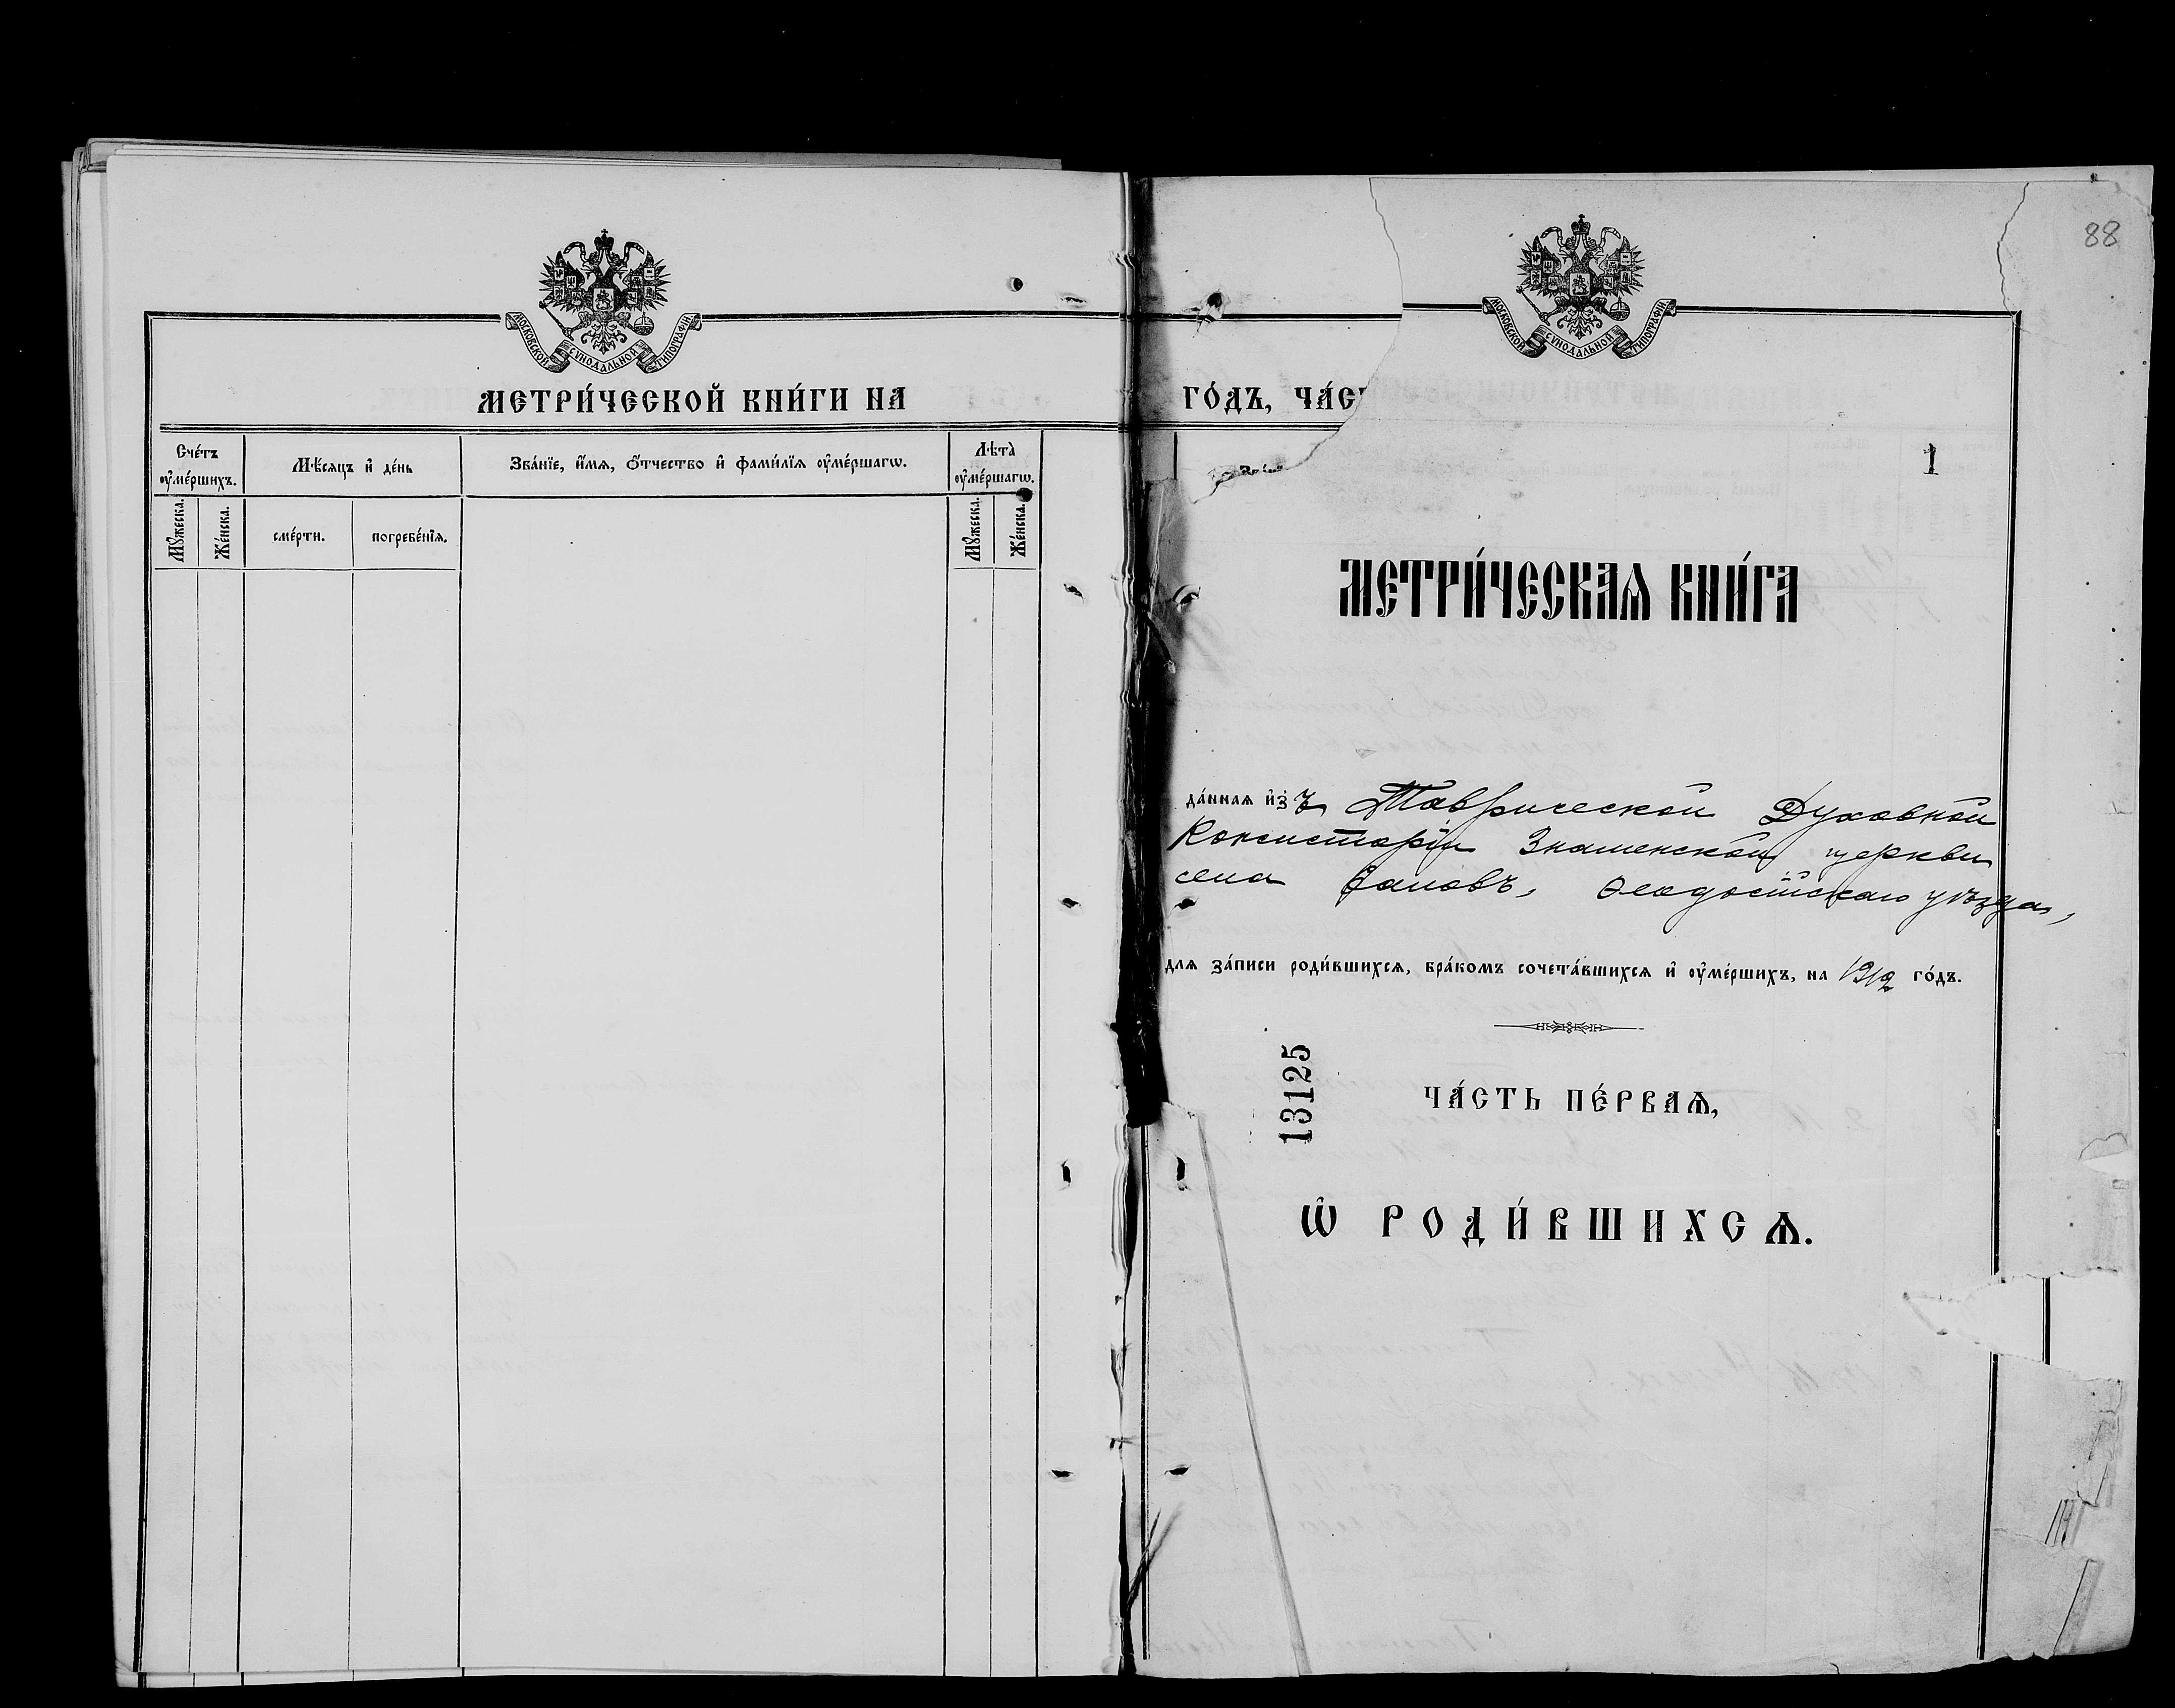 МОСКОВСКОЙ СУНОДАЛЬНОЙ ТИПОГРАФІИ.
МЕТРИ́ЧЕСКОЙ КНИ́ГИ НА
Сче́тъ оу҆ме́ршихъ.
Мѣ́сяцъ и҆ де́нь
Зва́нїе, и҆́мя, ѻ҆́тчество и҆ фами́лїя оу҆ме́ршагѡ.
Лѣта̀ оу҆ме́ршагѡ.
Мꙋ́жеска.
Же́нска.
сме́рти.
погребе́нїѧ.
Мꙋ́жеска.
Же́нска.
88
МОСКОВСКОЙ СУНОДАЛЬНОЙ ТИПОГРАФІИ.
ГО́ДЪ, ЧА́С
1
МЕТРИ́ЧЕСКАѦ КНИ́ГА
да́нная и҆зъ Таврической Духовной
Консисторіи Знаменской церкви
села Ѳеодосійскаго уѣзда,
для за́писи роди́вшихсѧ, бра́комъ сочета́вшихсѧ и҆ оу҆ме́ршихъ, на 1912 го́дъ.
13125
ЧА́СТЬ ПЕ́РВАѦ,
Ѡ҆ РОДИ́ВШИХСѦ.